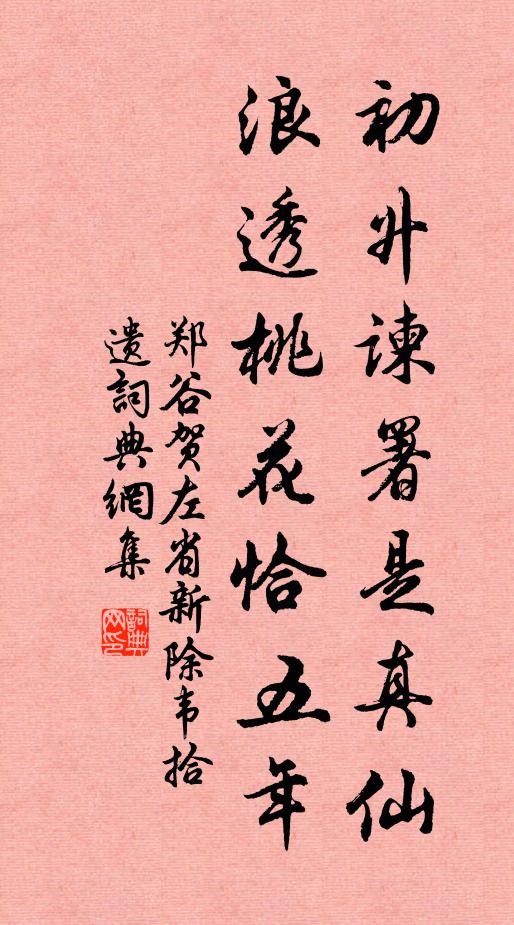 初升谏署是真仙
浪透桃花恰五年
郑谷贺左省新除韦拾
遗詞典網集
詞典网印